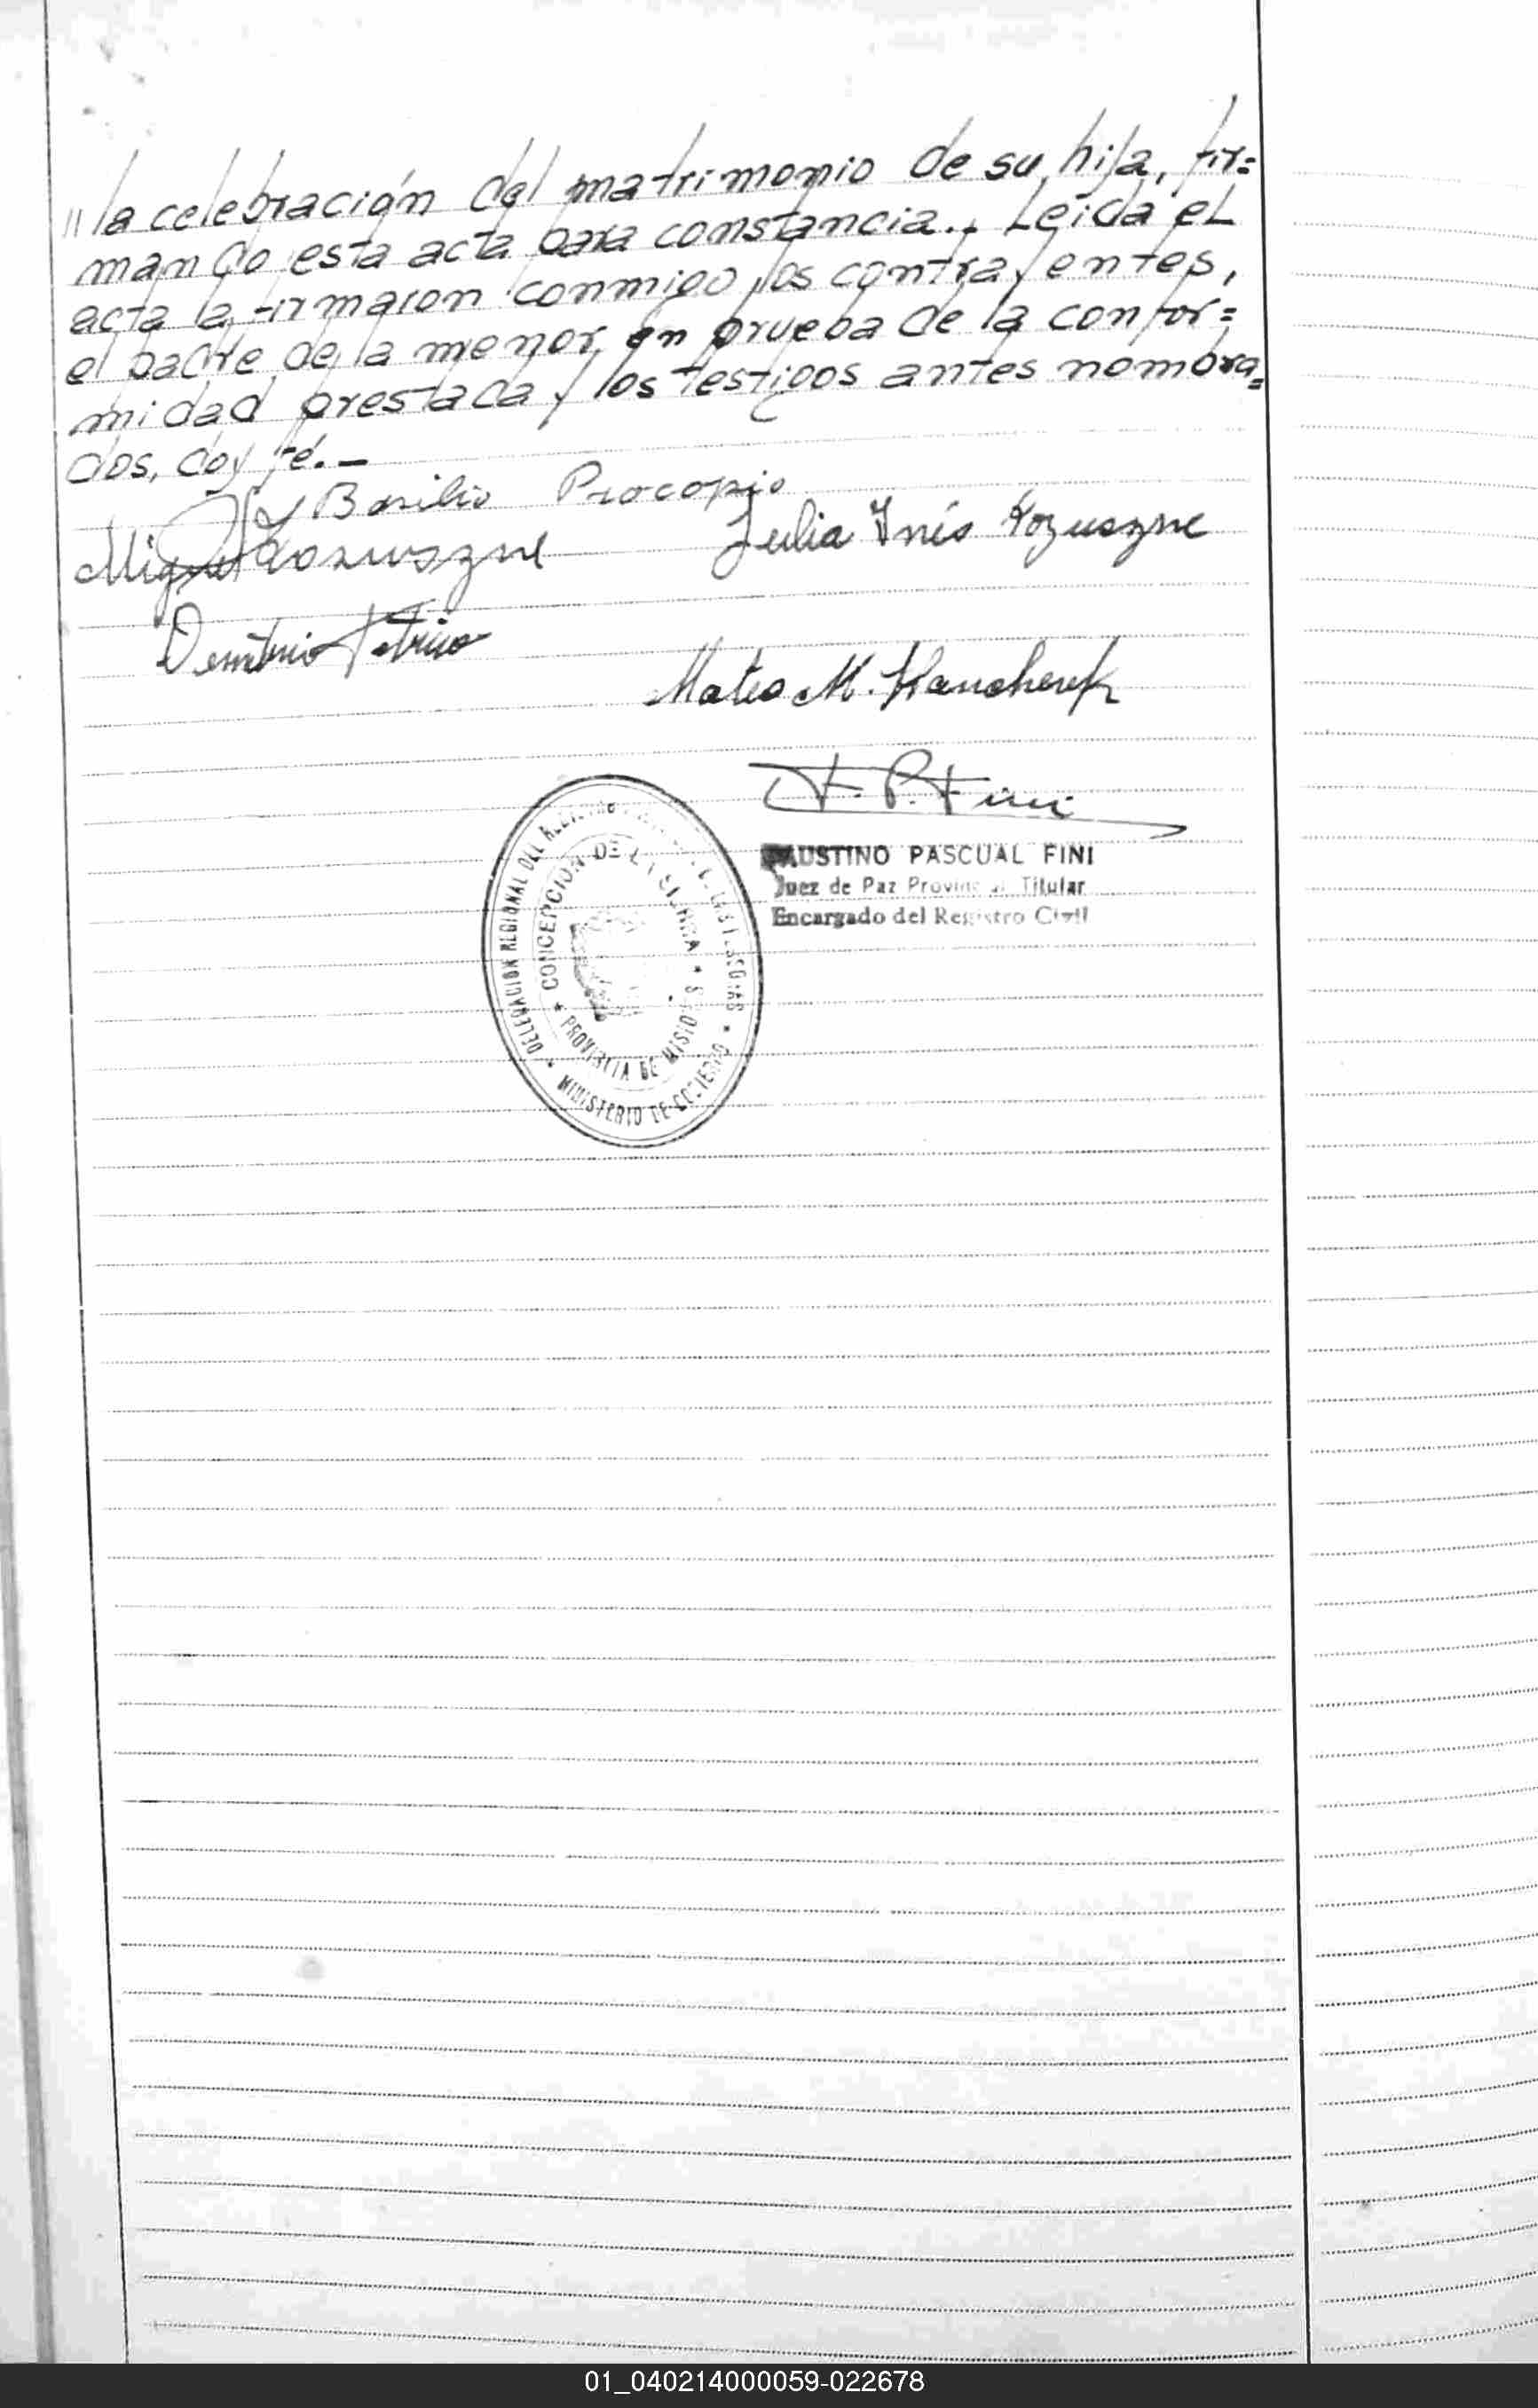 // la celebración del matrimonio de su hija, fir=
mando esta acta para constancia.. Leída el
acta la firmaron conmigo los contrayentes,
el padre de la menor en prueba de la confor=
midad prestada y los testigos antes nombra=
dos, doy fé.-
Basilio Procopio
Miguel Kozuszne
Julia Inés Kozuszne
Demetrio
Mateo M.
F. P. Fini
FAUSTINO PASCUAL FINI
Juez de Paz Provincial Titular
Encargado del Registro Civil
DELEGACION REGIONAL DEL
CONCEPCION DE LA SIERRA
PROVINCIA DE MISIONES
MINISTERIO DE GOBIERNO
01_040214000059-022678